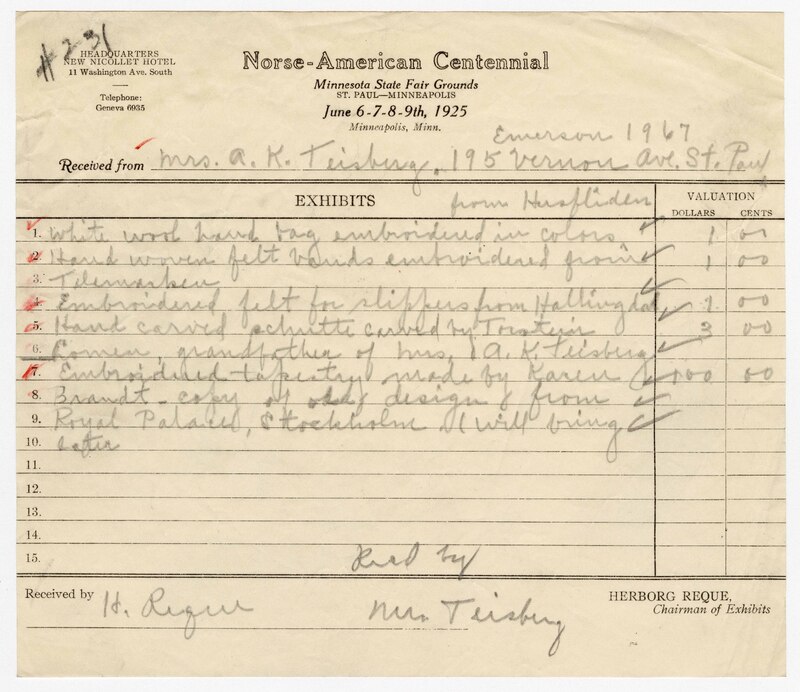 # 231
HEADQUARTERS
NEW NICOLLET HOTEL
11 Washington Ave. South
Telephone:
Geneva 6935
Norse-American Centennial
Minnesota State Fair Grounds
ST. PAUL—MINNEAPOLIS
June 6-7-8-9th, 1925
Minneapolis, Minn.
Emerson 1967
Received from Mrs. A. K. Teisberg, 195 Vernon Ave. St. Paul
EXHIBITS from Husfliden VALUATION
DOLLARS CENTS
1. White wool hand bag embroidered in colors 1 00
2. Hand woven felt bands embroidered from 1 00
3. Telemarken
4. Embroidered felt for slippers from Hallingdal 1 00
5. Hand carved schutte carved by Torstein 3 00
6. Lomen, grandfather of Mrs. A. K. Teisberg
7. Embroidered tapestry made by Karen 100 00
8. Brandt - copy of old design from
9. Royal Palace, Stockholm I will bring
10. later
11.
12.
13.
14.
15. Recd by
Received by H. Reque Mrs. Teisberg
HERBORG REQUE,
Chairman of Exhibits